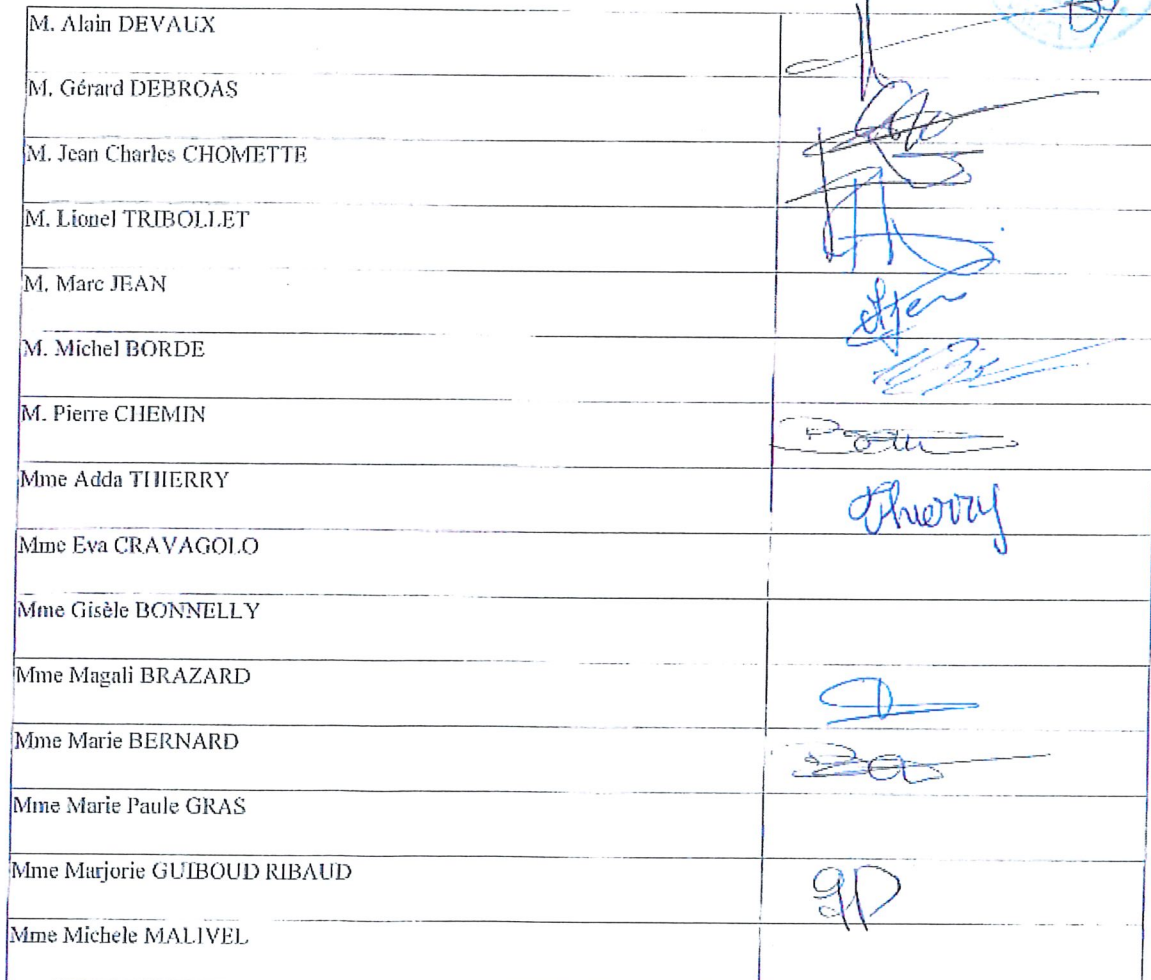 M. Alain DEVAUX
M. Gérard DEBROAS
M. Jean Charles CHOMETTE
M. Lionel TRIBOLLET
M. Marc JEAN
M. Michel BORDE
M. Pierre CHEMIN
Mme Adda THIERRY
Thierry
Mme Eva CRAVAGOLO
Mme Gisèle BONNELLY
Mme Magali BRAZARD
Mme Marie BERNARD
Mme Marie Paule GRAS
Mme Marjorie GUIBOUD RIBAUD
Mme Michele MALIVEL